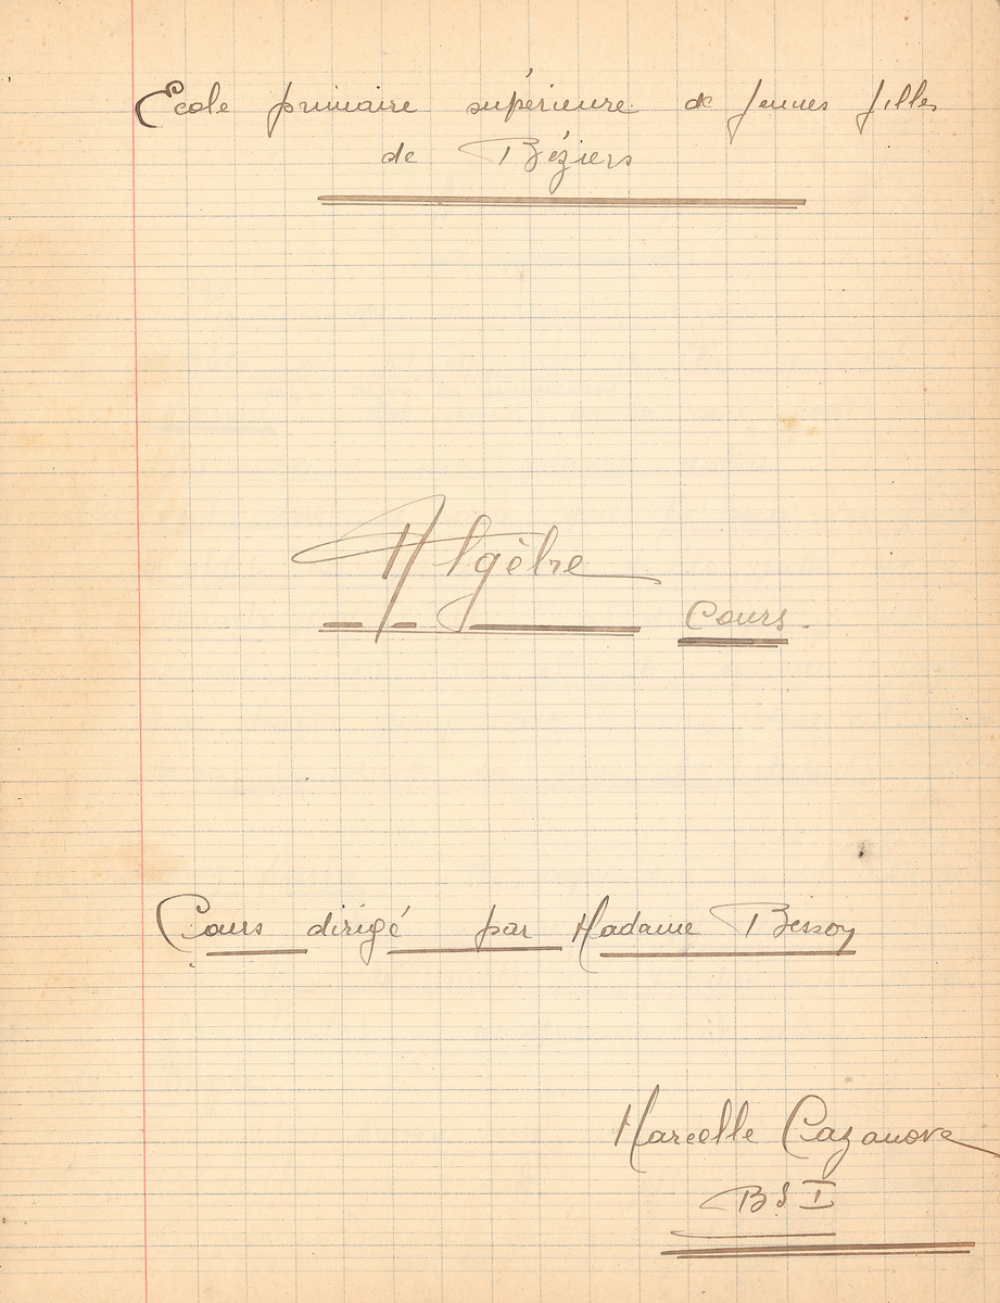 Ecole primaire supérieure de jeunes filles
de Béziers
Algèbre
Cours
Cours dirigé par Madame Bessoy
Marcelle Cazanova
BS I